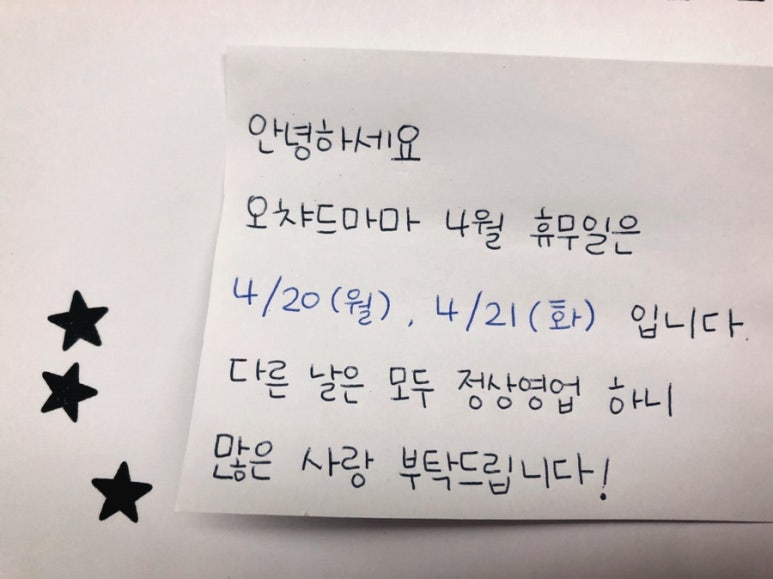 안녕하세요
오챠드마마 4월 휴무일은
4/20(월), 4/21(화) 입니다.
다른 날은 모두 정상영업 하니
많은 사랑 부탁드립니다!